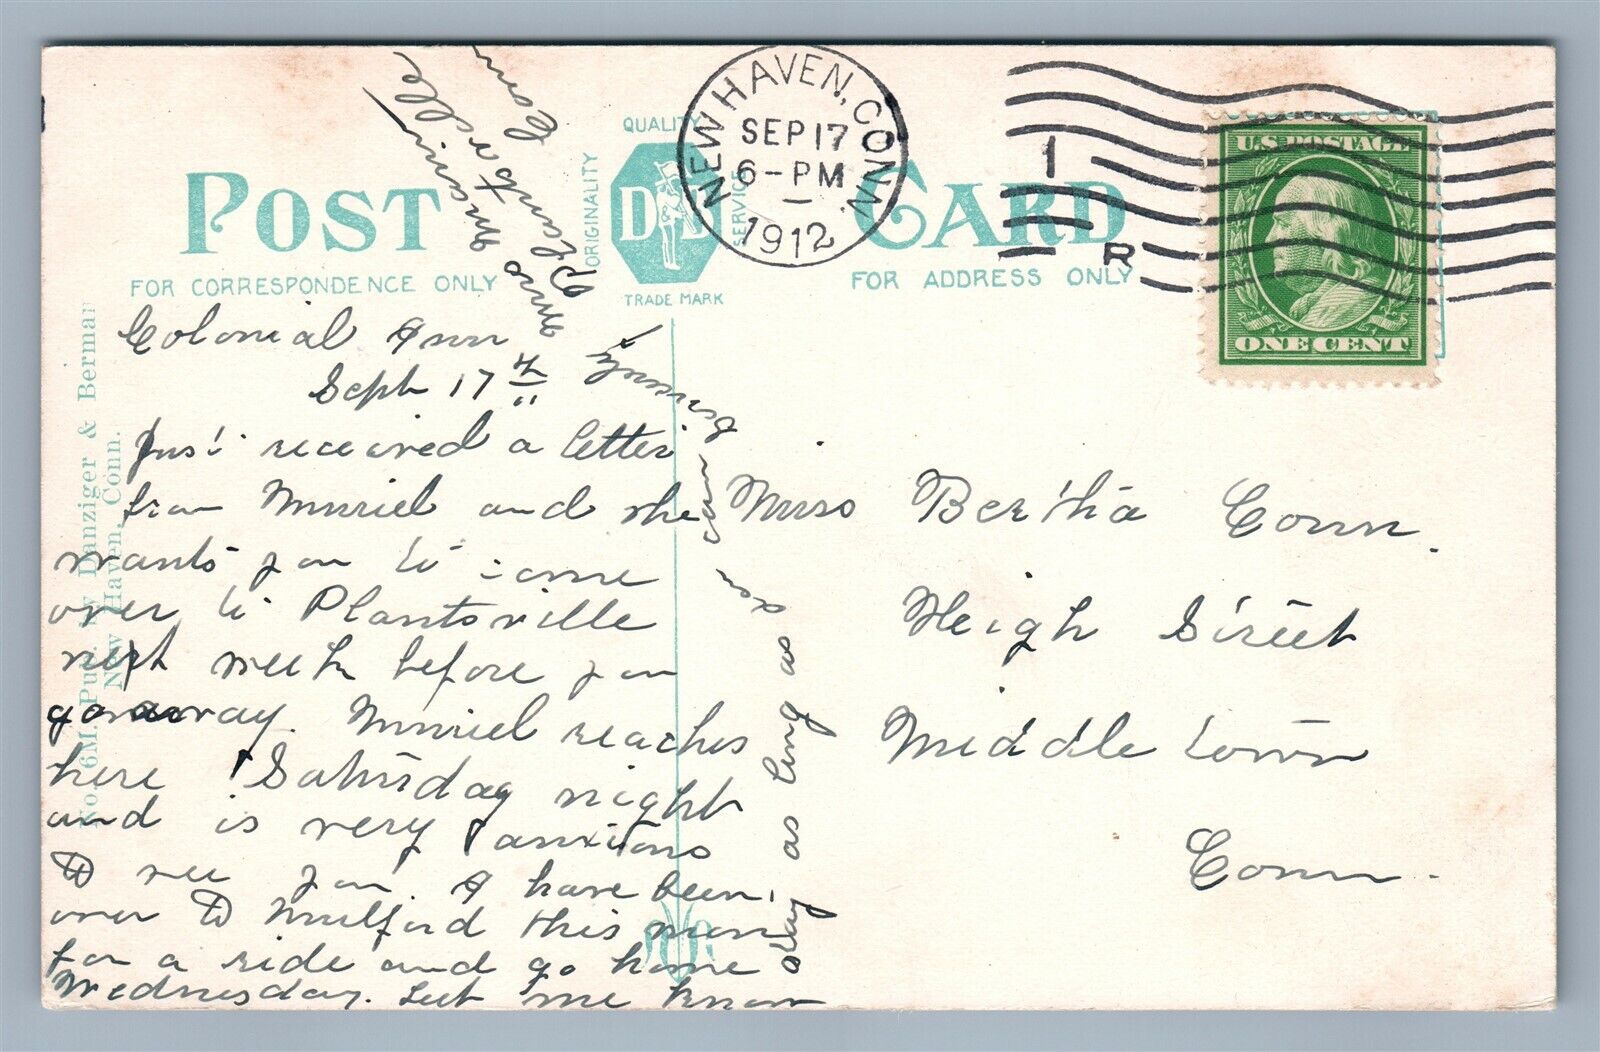 POST CARD
FOR CORRESPONDENCE ONLY
FOR ADDRESS ONLY
QUALITY
ORIGINALITY
SERVICE
D
TRADE MARK
NEW HAVEN, CONN.
SEP 17
6-PM
1912
1
R
U.S. POSTAGE
ONE CENT
Danziger & Berman
New Haven, Conn.
Colonial Inn
Sept 17th
Just received a letter
from Muriel and she
wants you to come
over to Plantsville
next week before you
go away. Muriel reaches
here Saturday night
and is very anxious
to see you. I have been
over to Milford this morn
for a ride and go home
Wednesday. Let me know
stay as long as you can
Plantsville
Conn
Miss Bertha Conn.
Heigh Street
Middletown
Conn.